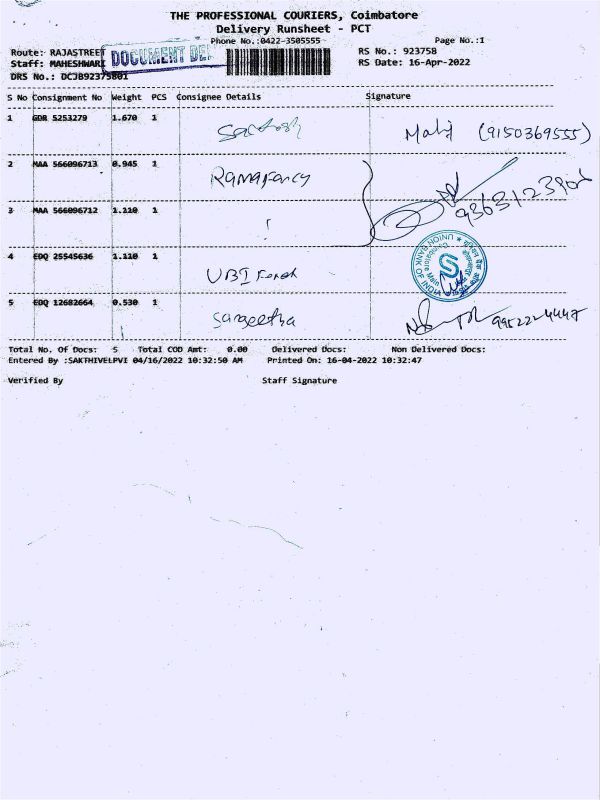 THE PROFESSIONAL COURIERS, Coimbatore
Delivery Runsheet - PCT
Phone No.:0422-3505555
Page No.:1
Route: RAJASTREET
RS No.: 923758
Staff: MAHESHWARI
DOCUMENT DEL
RS Date: 16-Apr-2022
DRS No.: DCJB92375801
S No Consignment No Weight PCS Consignee Details Signature
1 GDR 5253279 1.670 1 Santosh (9150369555)
2 MAA 566096713 0.945 1 Ramafancy
3 MAA 566096712 1.110 1
4 EDQ 25545636 1.110 1 UBI
UNION BANK OF INDIA
5 EDQ 12682664 0.530 1 Sangeetha
Total No. Of Docs: 5 Total COD Amt: 0.00 Delivered Docs: Non Delivered Docs:
Entered By :SAKTHIVELPVI 04/16/2022 10:32:50 AM Printed On: 16-04-2022 10:32:47
Verified By Staff Signature